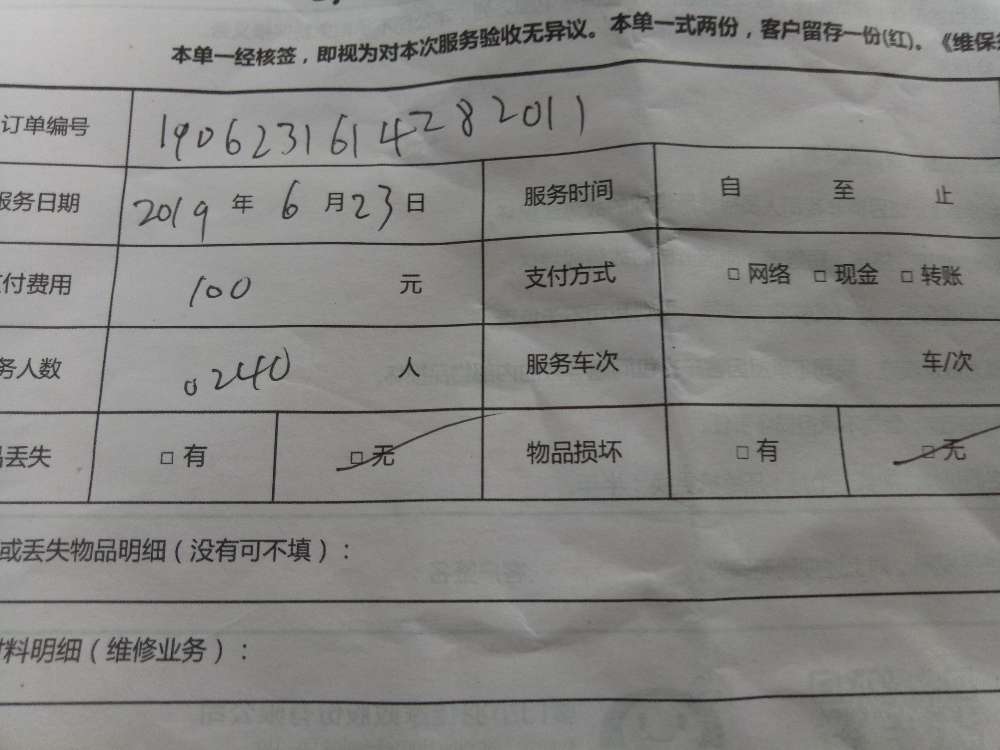 本单一经核签，即视为对本次服务验收无异议。本单一式两份，客户留存一份(红)。《维保
订单编号 1906231614282011
服务日期 2019 年 6 月 23 日 服务时间 自 至 止
付费用 100 元 支付方式 □ 网络 □ 现金 □ 转账
务人数 0240 人 服务车次 车/次
丢失 □ 有 □ 无 物品损坏 □ 有 □ 无
或丢失物品明细（没有可不填）：
材料明细（维修业务）：